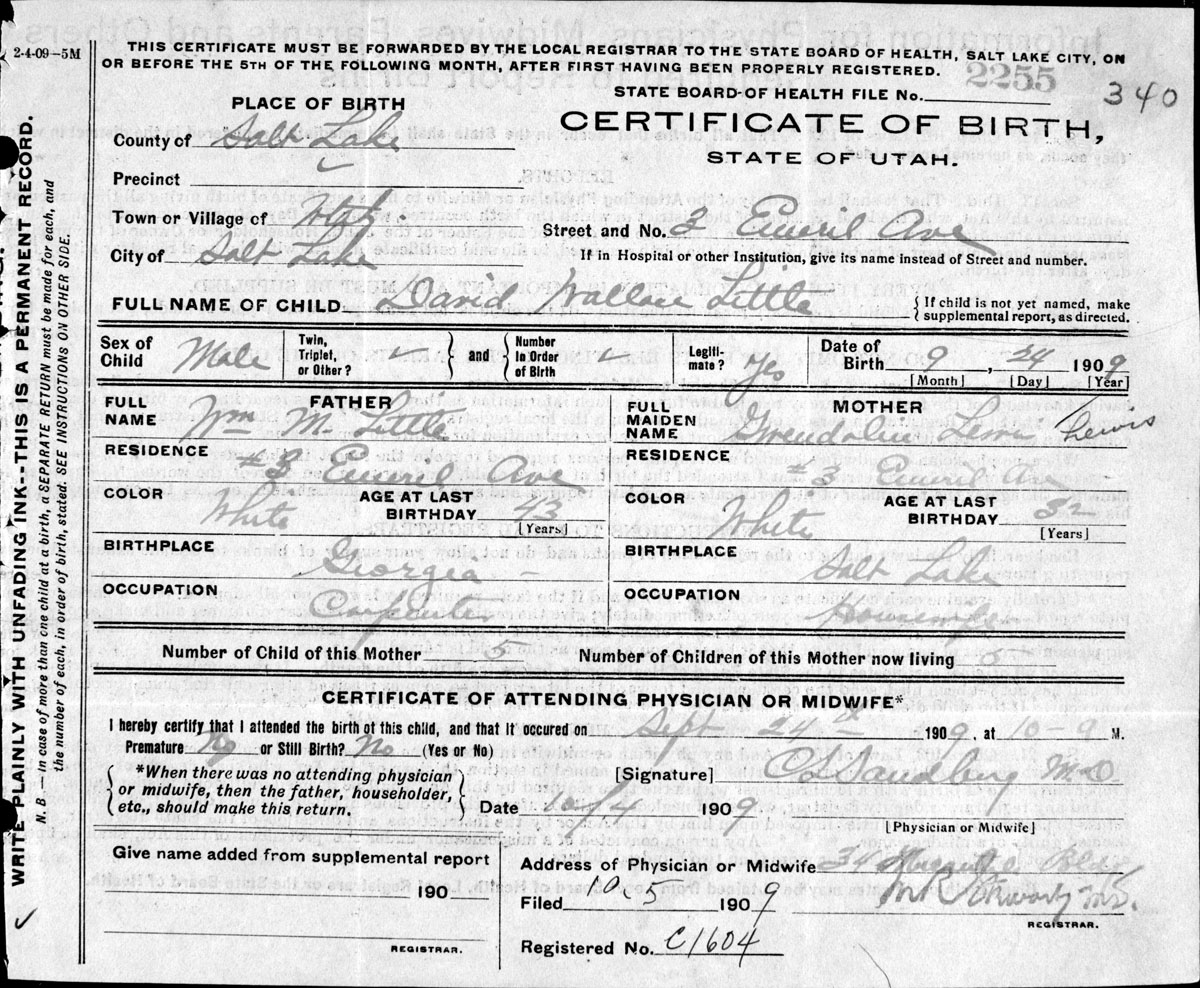 2-4-09-5M
THIS CERTIFICATE MUST BE FORWARDED BY THE LOCAL REGISTRAR TO THE STATE BOARD OF HEALTH, SALT LAKE CITY, ON
OR BEFORE THE 5TH OF THE FOLLOWING MONTH, AFTER FIRST HAVING BEEN PROPERLY REGISTERED.
2255
STATE BOARD OF HEALTH FILE No.
340
PLACE OF BIRTH
CERTIFICATE OF BIRTH,
STATE OF UTAH.
County of Salt Lake
Precinct
Town or Village of Utah
Street and No. 3 Ave
City of Salt Lake
If in Hospital or other Institution, give its name instead of Street and number.
FULL NAME OF CHILD David Wallace Little
{ If child is not yet named, make
{ supplemental report, as directed.
Sex of Child Male
Twin, Triplet, or Other?
and
Number In Order of Birth
Legiti-mate? yes
Date of Birth 9, 24 1909
[Month] [Day] [Year]
FATHER
FULL NAME Wm M. Little
RESIDENCE #3 Ave
COLOR White
AGE AT LAST BIRTHDAY 43
[Years]
BIRTHPLACE Georgia
OCCUPATION Carpenter
MOTHER
FULL MAIDEN NAME Lewis
RESIDENCE #3 Ave
COLOR White
AGE AT LAST BIRTHDAY 32
[Years]
BIRTHPLACE Salt Lake
OCCUPATION
Number of Child of this Mother 5
Number of Children of this Mother now living
CERTIFICATE OF ATTENDING PHYSICIAN OR MIDWIFE*
I hereby certify that I attended the birth of this child, and that it occured on Sept 24th 1909, at 10-9 M.
Premature No or Still Birth? No (Yes or No)
*When there was no attending physician
or midwife, then the father, householder,
etc., should make this return.
[Signature] Sandberg M.D
Date 10/4 1909
[Physician or Midwife]
Give name added from supplemental report
190
REGISTRAR.
Address of Physician or Midwife 34
Filed 10-5 1909
REGISTRAR.
Registered No. C1604
WRITE PLAINLY WITH UNFADING INK--THIS IS A PERMANENT RECORD.
N. B.—In case of more than one child at a birth, a SEPARATE RETURN must be made for each, and
the number of each, in order of birth, stated. SEE INSTRUCTIONS ON OTHER SIDE.